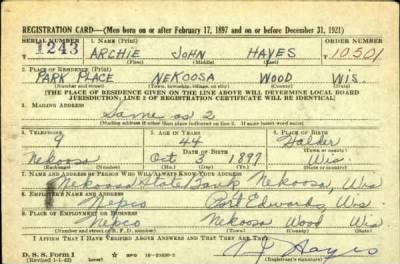 REGISTRATION CARD—(Men born on or after February 17, 1897 and on or before December 31, 1921)
SERIAL NUMBER 1. NAME (Print) ORDER NUMBER
1243 ARCHIE JOHN HAYES 10501
(First) (Middle) (Last)
2. PLACE OF RESIDENCE (Print)
PARK PLACE NEKOOSA WOOD WIS.
(Number and street) (Town, township, village, or city) (County) (State)
[THE PLACE OF RESIDENCE GIVEN ON THE LINE ABOVE WILL DETERMINE LOCAL BOARD
JURISDICTION; LINE 2 OF REGISTRATION CERTIFICATE WILL BE IDENTICAL]
3. MAILING ADDRESS
Same as 2
[Mailing address if other than place indicated on line 2. If same insert word same]
4. TELEPHONE 5. AGE IN YEARS 6. PLACE OF BIRTH
9 44 Halder
DATE OF BIRTH
Nekoosa Oct 3 1897 Wis
(Exchange) (Number) (Mo.) (Day) (Yr.) (State or country)
7. NAME AND ADDRESS OF PERSON WHO WILL ALWAYS KNOW YOUR ADDRESS
Nekoosa State Bank Nekoosa, Wis
8. EMPLOYER'S NAME AND ADDRESS
Nepco Port Edwards, Wis.
9. PLACE OF EMPLOYMENT OR BUSINESS
Nepco Nekoosa Wood Wis
(Number and street or R. F. D. number) (Town) (County) (State)
I AFFIRM THAT I HAVE VERIFIED ABOVE ANSWERS AND THAT THEY ARE TRUE.
D. S. S. Form 1
(Revised 1-1-42) (over) Hayes